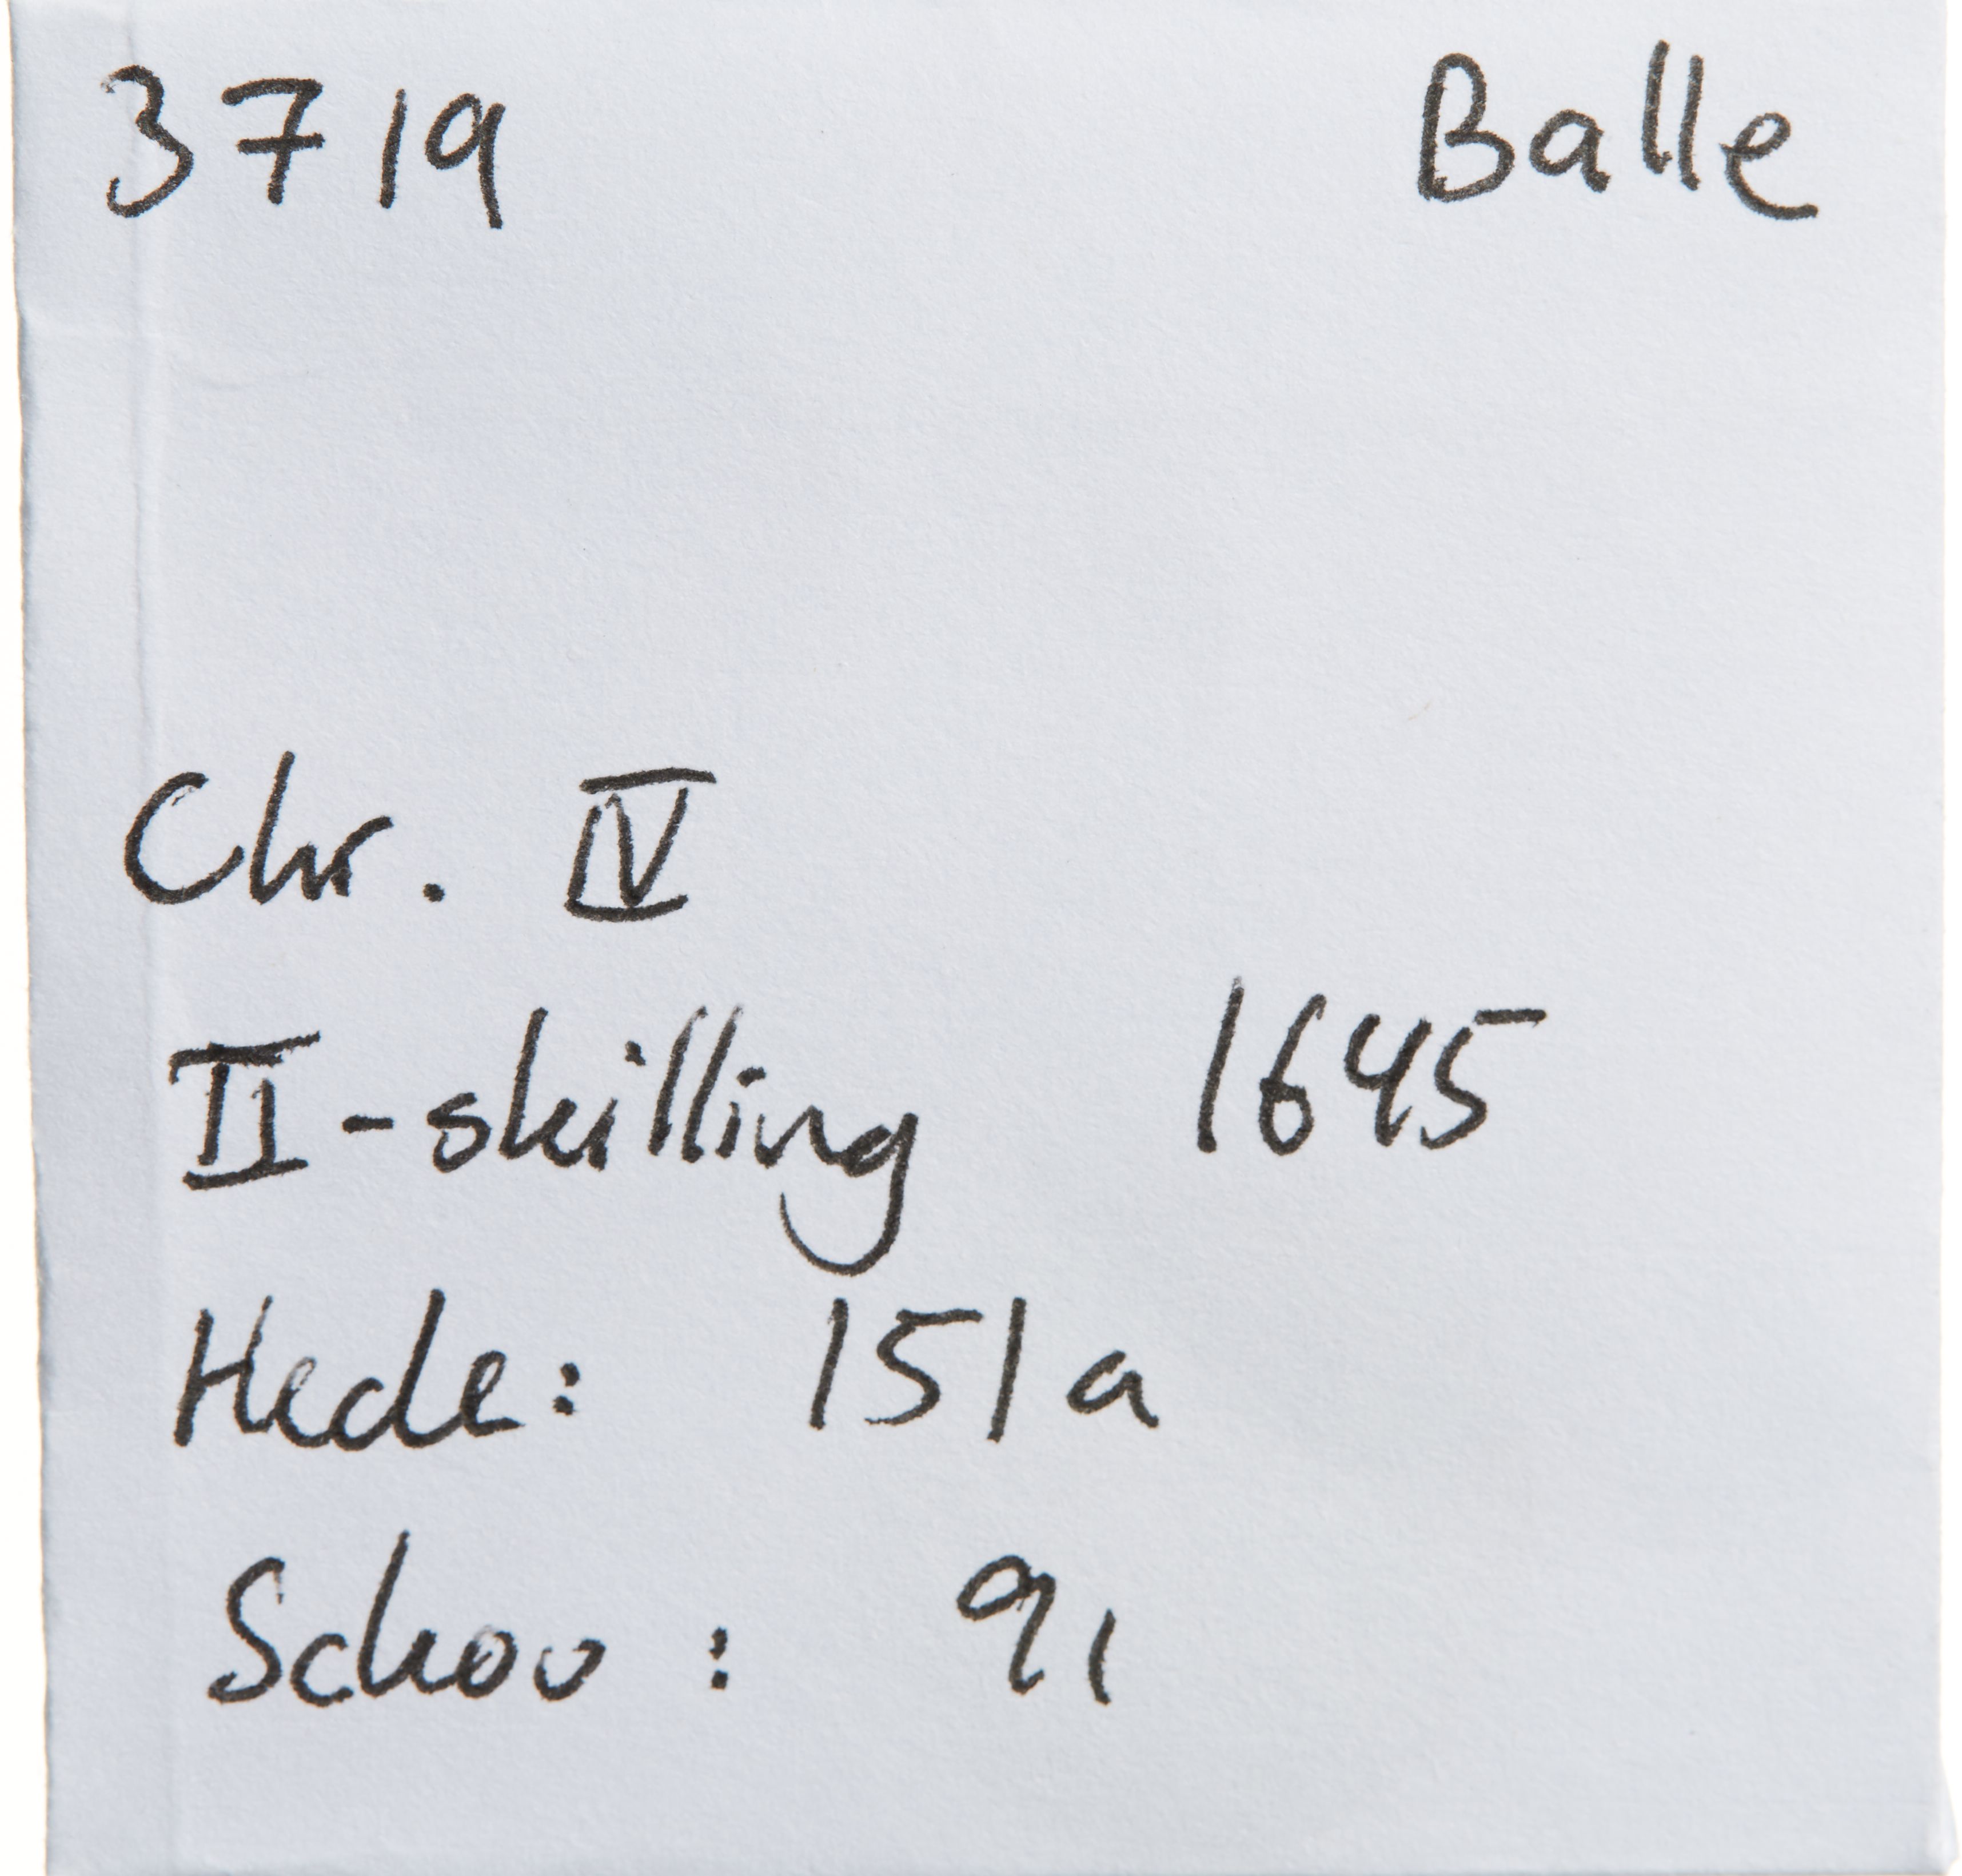 3719 Balle
Chr. IV
II-skilling 1645
Hede: 151a
Schou: 91